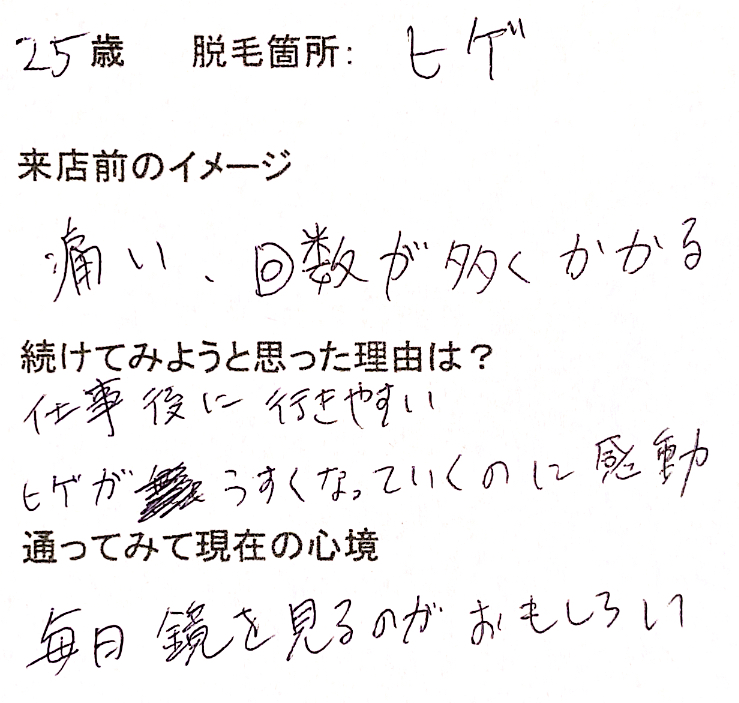 25歳 脱毛箇所: ヒゲ
来店前のイメージ
痛い、回数が多くかかる
続けてみようと思った理由は？
仕事後に行きやすい
ヒゲがうすくなっていくのに感動
通ってみて現在の心境
毎日鏡を見るのがおもしろい